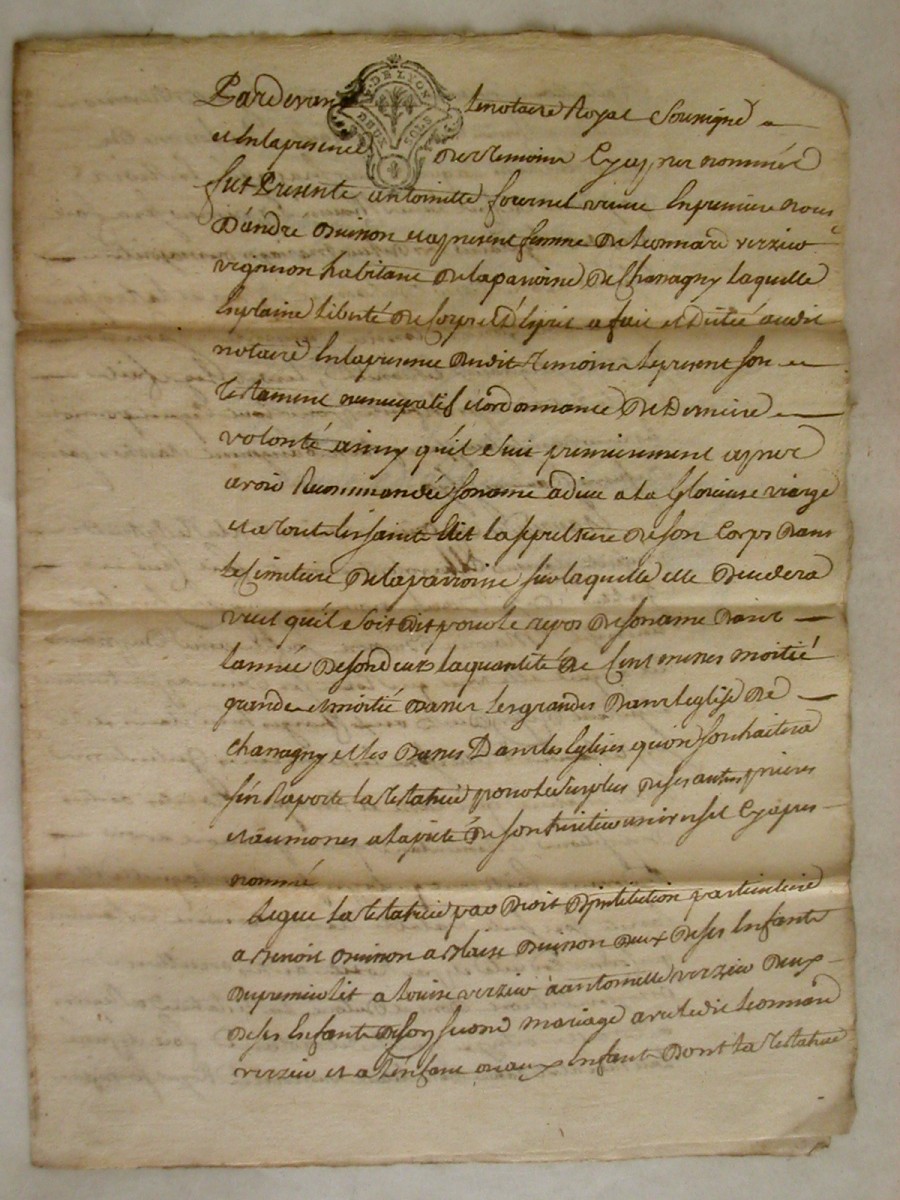 Pardevant le notaire Royal Sousigné
G. DE LYON
DEUX SOLS
et en la presence des temoins cy apres nommés
fut presente antoinette fournel veuve en premiere nous
D'andré Buinon et apresent femme de Leonnard verziew
vigneron habitant de la parroisse de Charnagny laquelle
en plaine liberté de corps et d'esprit a fait et dicté audit
notaire en la presence desdit temoins le present son
testament nuncupatif et ordonnance de derniere
volonté ainsy qu'il suit premierement apres
avoir recommandée son ame a dieu a la glorieuse vierge
et a tout les saints Elit la sepulture de son corps dans
le cimetiere de la parroisse sur laquelle elle decedera
veut qu'il soit dit pour le repos de son ame dans
l'année de son decex la quantité de cent messes moitié
grandes et moitié basses les grandes dans l'eglise de
Charnagny et les basses dans les Eglises qu'on souhaitera
s'en raporte la testatrice pour le surplus de ses autres prieres
et aumones a la pieté de son heritier universel cy apres
nommé
Legue la testatrice par droit d'institution particuliere
a Benoit Buinon a Blaise Buinon deux de ses enfants
du premier lit a Louise verziew a antoinette verziew deux
de ses enfants de son second mariage avec ledit Leonnard
verziew et a l'enfant ou aux enfants dont la testatrice